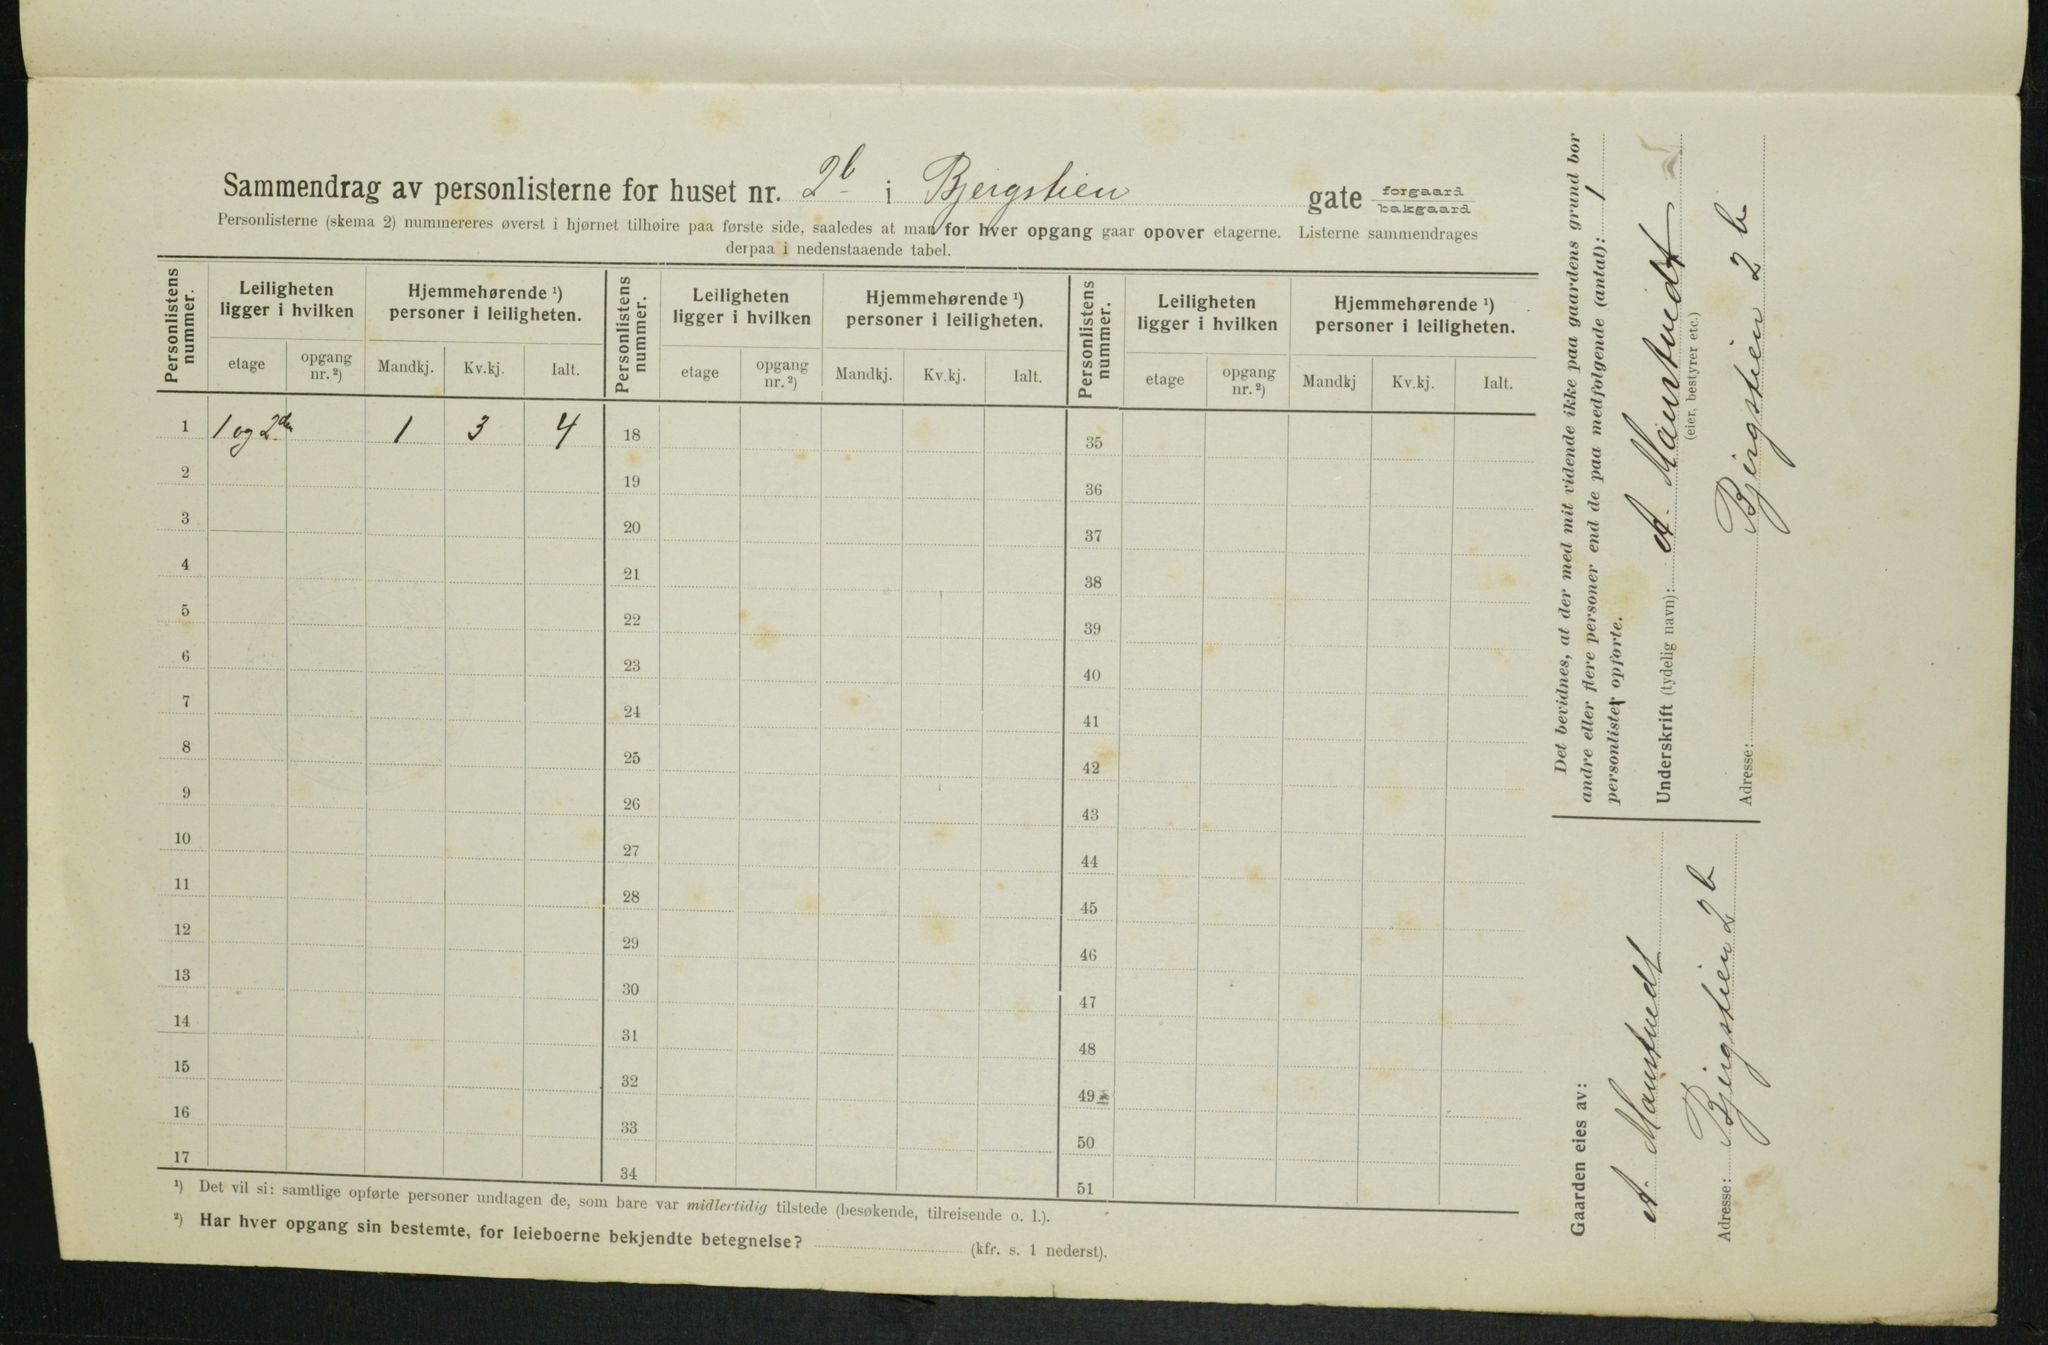 Sammendrag av personlisterne for huset nr. 2b i Bjergstien gate forgaard bakgaard
Personlisterne (skema 2) nummereres øverst i hjørnet tilhøire paa første side, saaledes at man for hver opgang gaar opover etagerne. Listerne sammendrages
derpaa i nedenstaaende tabel.
Personlistens nummer. Leiligheten ligger i hvilken Hjemmehørende ¹) personer i leiligheten. Personlistens nummer. Leiligheten ligger i hvilken Hjemmehørende ¹) personer i leiligheten. Personlistens nummer. Leiligheten ligger i hvilken Hjemmehørende ¹) personer i leiligheten.
etage opgang nr. ²) Mandkj. Kv.kj. Ialt. etage opgang nr. ²) Mandkj. Kv.kj. Ialt. etage opgang nr. ²) Mandkj Kv.kj. Ialt.
1 1 og 2den 1 3 4 18 35
2 19 36
3 20 37
4 21 38
5 22 39
6 23 40
7 24 41
8 25 42
9 26 43
10 27 44
11 28 45
12 29 46
13 30 47
14 31 48
15 32 49
16 33 50
17 34 51
¹) Det vil si: samtlige opførte personer undtagen de, som bare var midlertidig tilstede (besøkende, tilreisende o. l.).
²) Har hver opgang sin bestemte, for leieboerne bekjendte betegnelse? (kfr. s. 1 nederst).
Det bevidnes, at der med mit vidende ikke paa gaardens grund bor
andre eller flere personer end de paa medfølgende (antal): 1
personlister opførte.
Underskrift (tydelig navn): A. Maurtvedt
(eier, bestyrer etc.)
Adresse: Bjergstien 2 b
Gaarden eies av:
A. Maurtvedt
Adresse: Bjergstien 2 b